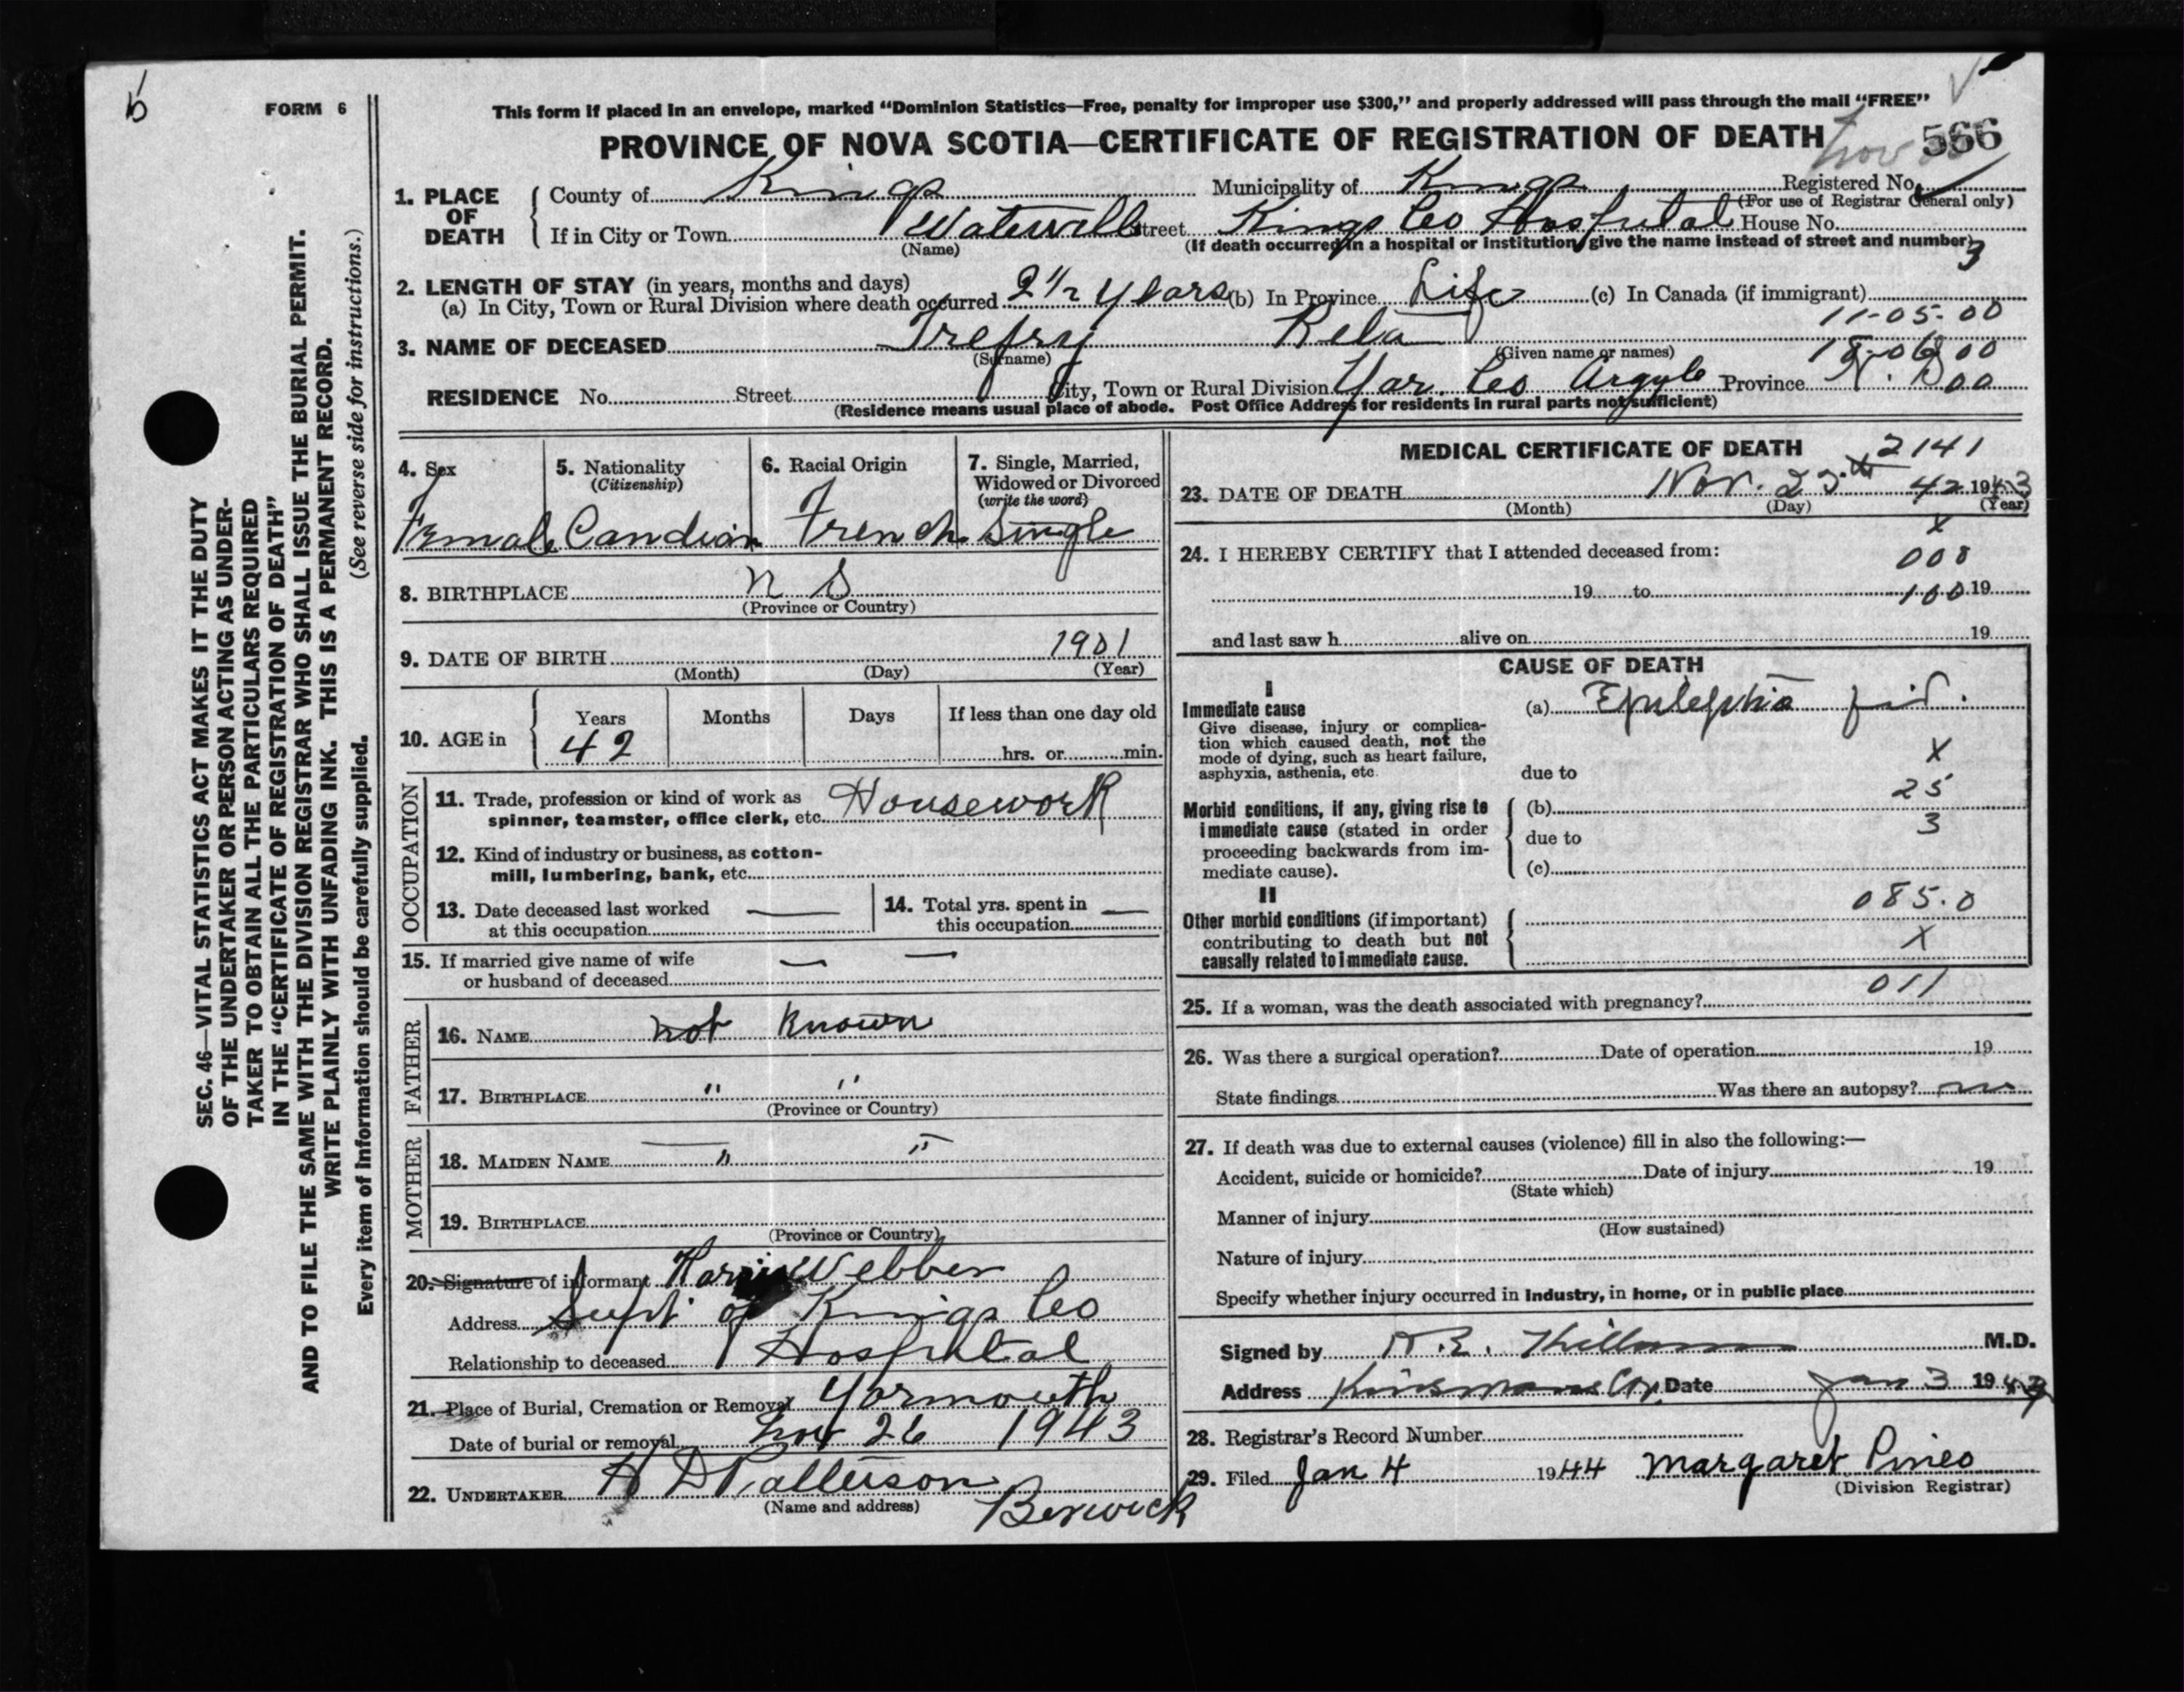 FORM 6
This form if placed in an envelope, marked “Dominion Statistics—Free, penalty for improper use $300,” and properly addressed will pass through the mail “FREE”
PROVINCE OF NOVA SCOTIA—CERTIFICATE OF REGISTRATION OF DEATH
Nov 566
SEC. 46—VITAL STATISTICS ACT MAKES IT THE DUTY
OF THE UNDERTAKER OR PERSON ACTING AS UNDER-
TAKER TO OBTAIN ALL THE PARTICULARS REQUIRED
IN THE “CERTIFICATE OF REGISTRATION OF DEATH”
AND TO FILE THE SAME WITH THE DIVISION REGISTRAR WHO SHALL ISSUE THE BURIAL PERMIT.
WRITE PLAINLY WITH UNFADING INK. THIS IS A PERMANENT RECORD.
(See reverse side for instructions.)
Every item of information should be carefully supplied.
1. PLACE OF DEATH
County of Kings Municipality of Kings Registered No.
(For use of Registrar General only)
If in City or Town Waterville Street Kings Co Hospital House No.
(Name) (If death occurred in a hospital or institution give the name instead of street and number)
3
2. LENGTH OF STAY (in years, months and days)
(a) In City, Town or Rural Division where death occurred 2 1/2 years (b) In Province Life (c) In Canada (if immigrant)
11-05-00
3. NAME OF DECEASED Trefry Rela
(Surname) (Given name or names)
RESIDENCE No. Street City, Town or Rural Division Yar. Co Argyle Province N. S
00
(Residence means usual place of abode. Post Office Address for residents in rural parts not sufficient)
4. Sex 5. Nationality (Citizenship) 6. Racial Origin 7. Single, Married, Widowed or Divorced (write the word)
Female Candian French Single
8. BIRTHPLACE N S
(Province or Country)
9. DATE OF BIRTH 1901
(Month) (Day) (Year)
10. AGE in Years Months Days If less than one day old
42 hrs. or min.
OCCUPATION
11. Trade, profession or kind of work as
spinner, teamster, office clerk, etc. Housework
12. Kind of industry or business, as cotton-
mill, lumbering, bank, etc.
13. Date deceased last worked
at this occupation —
14. Total yrs. spent in
this occupation —
15. If married give name of wife
or husband of deceased — —
FATHER
16. NAME not known
17. BIRTHPLACE " "
(Province or Country)
MOTHER
18. MAIDEN NAME " "
19. BIRTHPLACE
(Province or Country)
20. Signature of informant Webber
Address Supt of Kings Co
Relationship to deceased Hospital
21. Place of Burial, Cremation or Removal Yarmouth
Date of burial or removal Nov 26 1943
22. UNDERTAKER H D Patterson
(Name and address) Berwick
MEDICAL CERTIFICATE OF DEATH
2141
23. DATE OF DEATH Nov. 25th 42 1943
(Month) (Day) (Year)
X
24. I HEREBY CERTIFY that I attended deceased from:
008
19 to 100 19
and last saw h alive on 19
CAUSE OF DEATH
I
Immediate cause
Give disease, injury or complica-
tion which caused death, not the
mode of dying, such as heart failure,
asphyxia, asthenia, etc.
(a) fit.
X
due to
25
Morbid conditions, if any, giving rise to
immediate cause (stated in order
proceeding backwards from im-
mediate cause).
(b)
3
due to
(c)
II
085.0
Other morbid conditions (if important)
contributing to death but not
causally related to immediate cause.
X
011
25. If a woman, was the death associated with pregnancy?
26. Was there a surgical operation? Date of operation 19
State findings Was there an autopsy? no
27. If death was due to external causes (violence) fill in also the following:—
Accident, suicide or homicide? Date of injury 19
(State which)
Manner of injury
(How sustained)
Nature of injury
Specify whether injury occurred in industry, in home, or in public place
Signed by Killam M.D.
Address Date Jan 3 19
28. Registrar’s Record Number
29. Filed Jan 4 1944 Margaret Pineo
(Division Registrar)